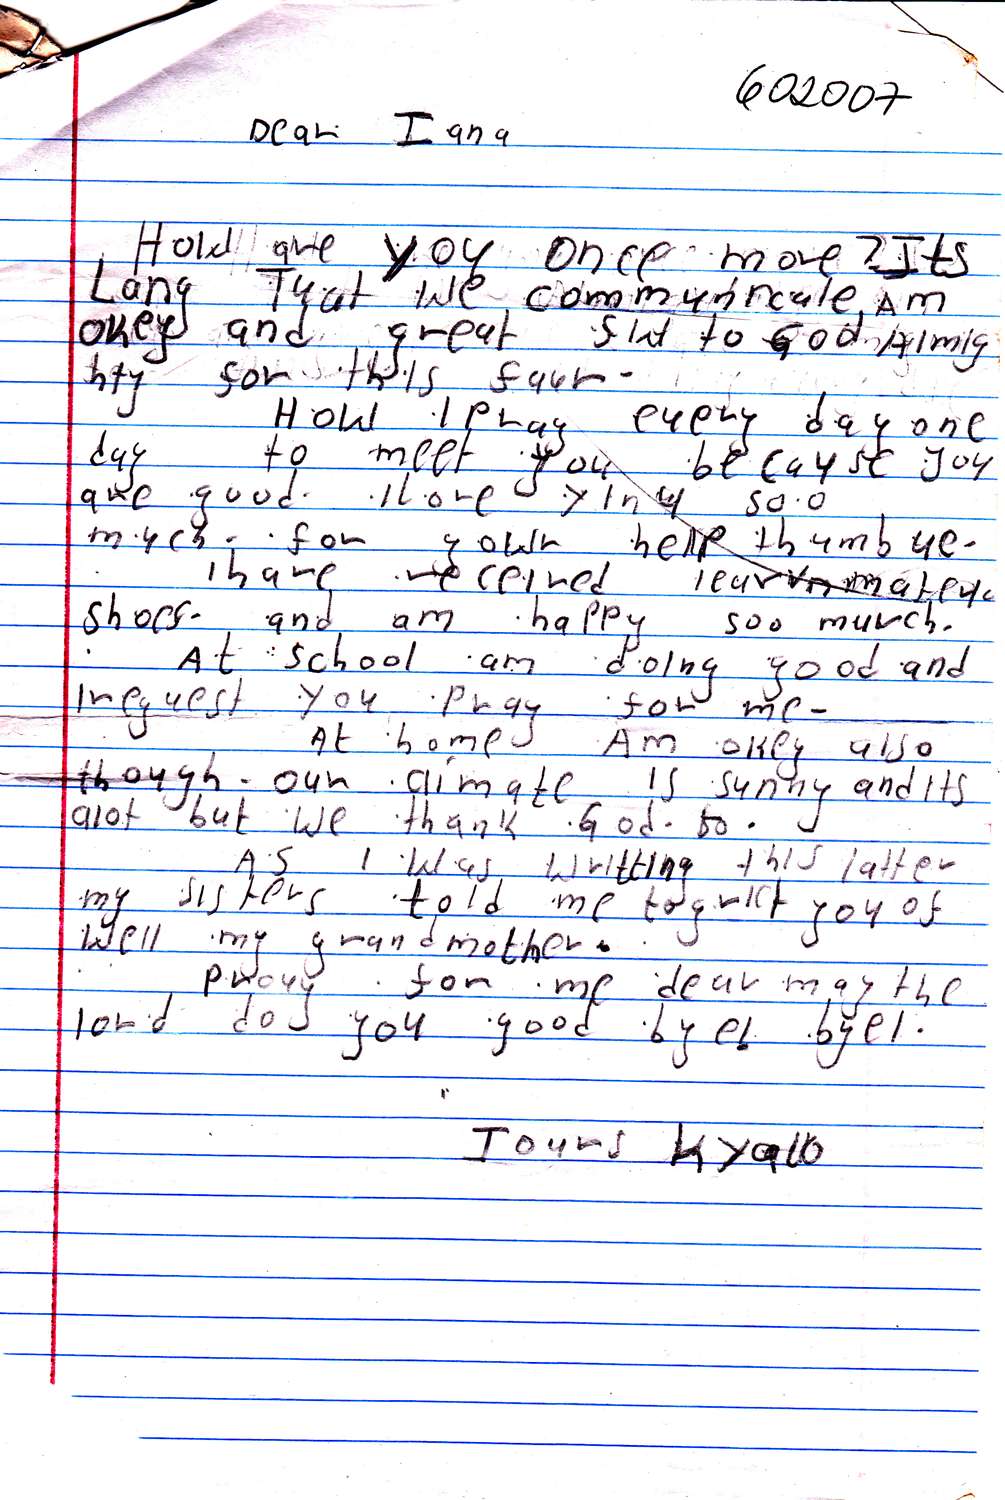 602007
Dear Iana
How are you once more? Its
Lang Tyat we communicate, Am
okey and great to God Almig
hty for this faur-
How I pray every day one
day to meet you because you
are good. Ilove so.o
much. for your
Ihave received
shoes. and am happy soo murch.
At school am doing good and
Ireguest you pray for me-
At home Am okey also
though. our climate is sunny and its
alot but we thank God. so.
As I was writting this latter
my sisters told me to you of
well my grandmother.
pray for me dear may the
lord do you good bye! bye!.
Iours kyalo